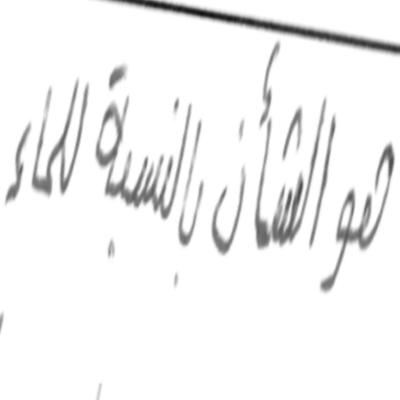 هو الشأن بالنسبة للماء